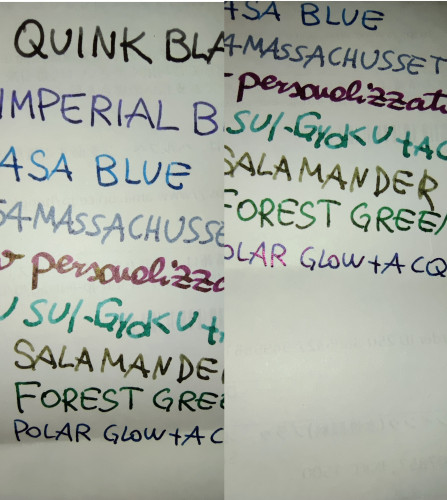 QUINK BLA
IMPERIAL B
ASA BLUE
54-MASSACHUSSE
personalizza
SUI-GYOKU+
SALAMANDE
FOREST GREE
POLAR GLOW+AC
ASA BLUE
4-MASSACHUSSET
personalizzat
SUI-GYOKU+AC
SALAMANDER
FOREST GREEN
OLAR GLOW+ACQ